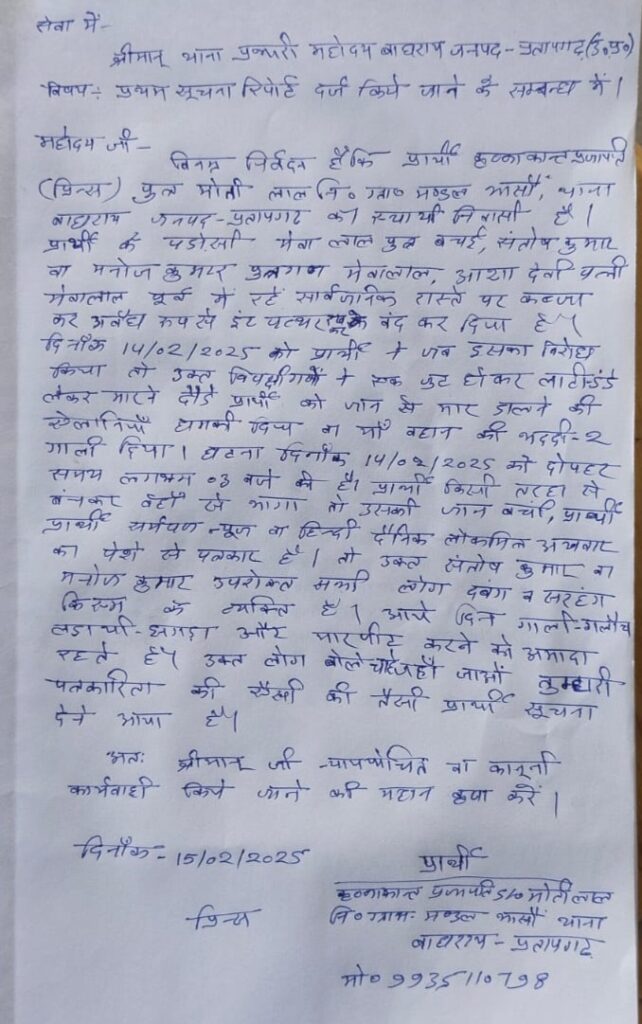 सेवा में-
श्रीमान् थाना प्रभारी महोदय बाघराय जनपद-प्रतापगढ़(उ०प्र०)
विषय:- प्रथम सूचना रिपोर्ट दर्ज किये जाने के सम्बन्ध में।
महोदय जी-
विनम्र निवेदन है कि प्रार्थी कृष्णकान्त प्रजापति
(प्रिन्स) पुत्र मोती लाल नि० ग्रा० मण्डल भासौं, थाना
बाघराय जनपद-प्रतापगढ का स्थायी निवासी है।
प्रार्थी के पडोसी मेवा लाल पुत्र बचई, संतोष कुमार
वा मनोज कुमार पुत्रगण मेवालाल, आशा देवी पत्नी
मेवालाल पूर्व में रहे सार्वजनिक रास्ते पर कब्जा
कर अवैध रूप से ईंट पत्थर रख के बंद कर दिया है।
दिनाँक 14/02/2025 को प्रार्थी ने जब इसका विरोध
किया तो उक्त विपक्षीगणों ने एक जुट होकर लाठी डंडे
लेकर मारने दौडे प्रार्थी को जान से मार डालने की
धमकी दिया वा माँ बहान की भददी-2
गाली दिया। घटना दिनाँक 14/02/2025 को दोपहर
समय लगभग 03 बजे की है। प्रार्थी किसी तरहा से
बंचकर वहाँ से भागा तो उसकी जान बची, प्रार्थी
प्रार्थी समर्पण न्यूज वा हिन्दी दैनिक लोकमित्र अखबार
का पेशे से पत्रकार है। तो उक्त संतोष कुमार वा
मनोज कुमार उपरोक्त सभी लोग दबंग व सरहंग
किस्म के व्यक्ति है। आये दिन गाली-गलौच
लडायी-झगड़ा और मारपीट करने को अमादा
रहते है। उक्त लोग बोले चाहे जहाँ जाओ तुम्हारी
पत्रकारिता की ऐसी की तैसी प्रार्थी सूचना
देने आया है।
अतः श्रीमान् जी न्यायोचित वा कानूनी
कार्यवाही किये जाने की महान कृपा करें।
दिनाँक-15/02/2025
प्रार्थी
कृष्णकान्त प्रजापति S/o मोती लाल
प्रिन्स
नि० ग्राम- मण्डल भासौं थाना
बाघराय-प्रतापगढ़
मो० 9935110798